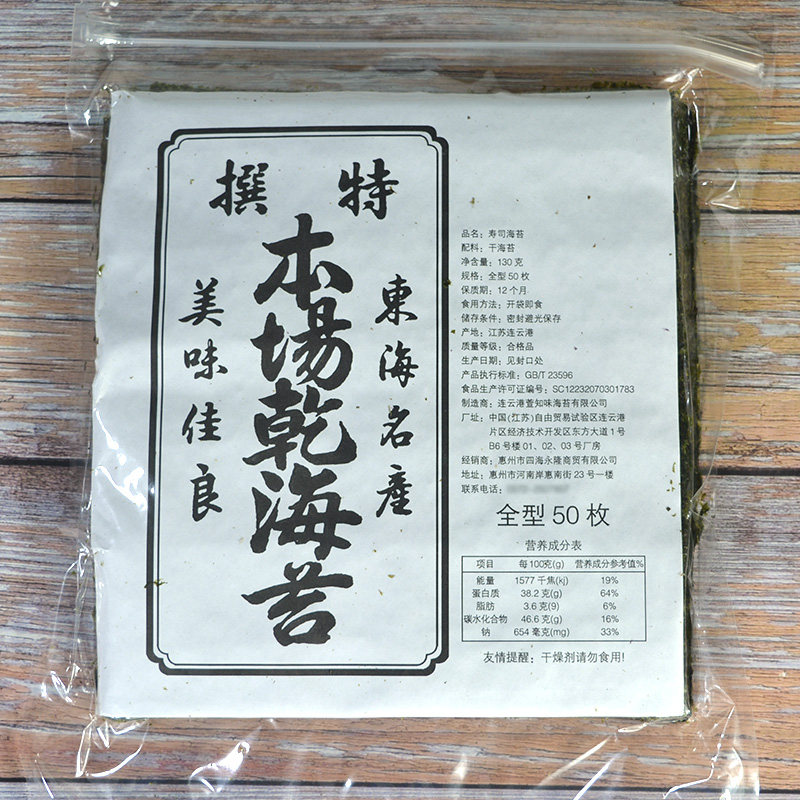 特撰
東海名産
本場乾海苔
美味佳良
品名：寿司海苔
配料：干海苔
净含量：130克
规格：全型50枚
保质期：12个月
食用方法：开袋即食
储存条件：密封避光保存
产地：江苏连云港
质量等级：合格品
生产日期：见封口处
产品执行标准：GB/T 23596
食品生产许可证编号：SC12232070301783
制造商：连云港萱知味海苔有限公司
厂址：中国(江苏)自由贸易试验区连云港
片区经济技术开发区东方大道1号
B6号楼01、02、03号厂房
经销商：惠州市四海永隆商贸有限公司
地址：惠州市河南岸惠南街23号一楼
联系电话：
全型50枚
营养成分表
项目 每100克(g) 营养成分参考值%
能量 1577千焦(kj) 19%
蛋白质 38.2克(g) 64%
脂肪 3.6克(9) 6%
碳水化合物 46.6克(g) 16%
钠 654毫克(mg) 33%
友情提醒：干燥剂请勿食用!